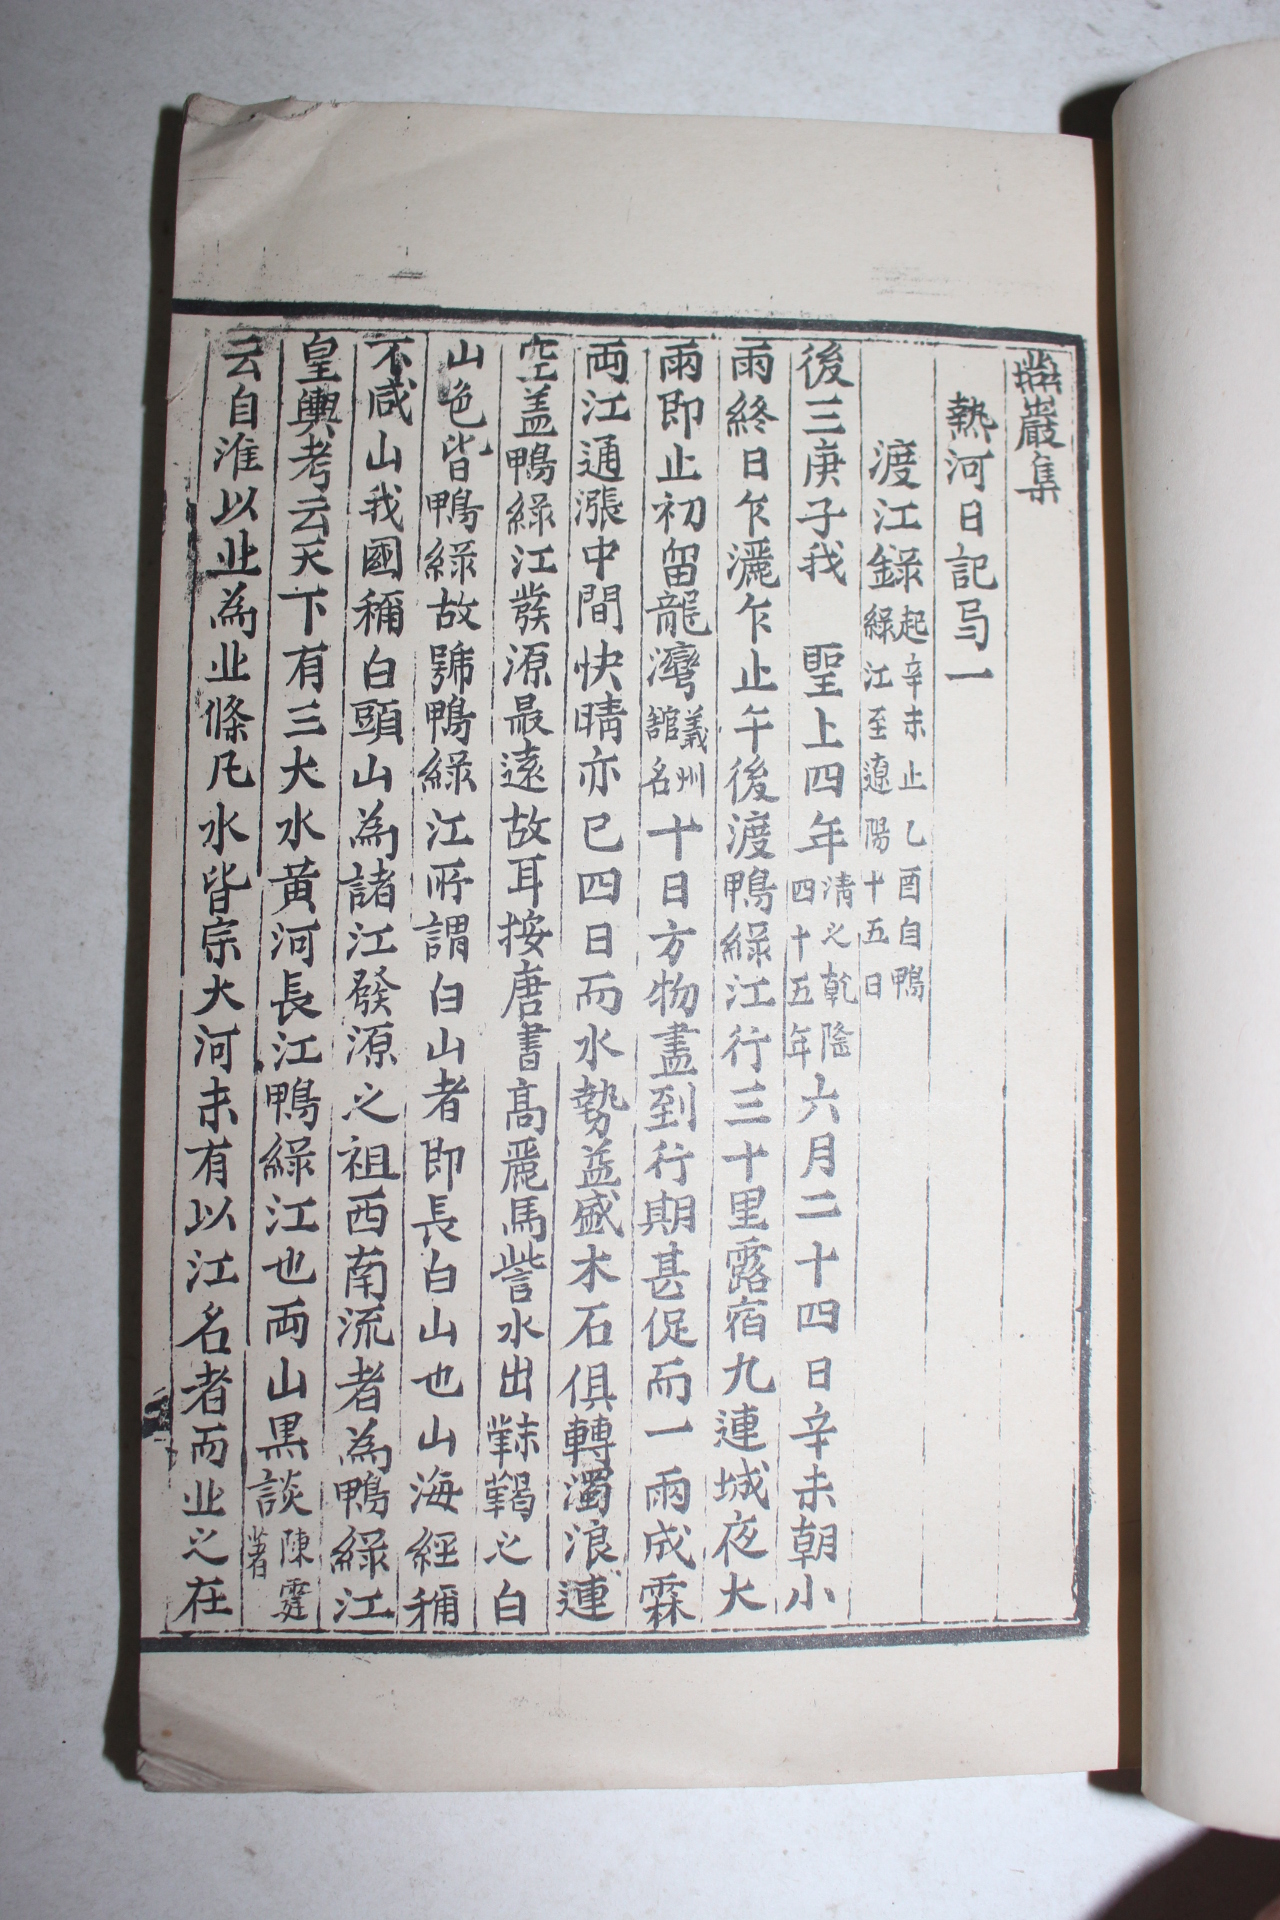 燕巖集
熱河日記弓一
渡江錄起辛未止乙酉自鴨綠江至遼陽十五日
後三庚子我　聖上四年清之乾隆四十五年六月二十四日辛未朝小
雨終日乍灑乍止午後渡鴨綠江行三十里露宿九連城夜大
雨即止初留龍灣義州舘名十日方物盡到行期甚促而一雨成霖
両江通漲中間快晴亦已四日而水勢益盛木石俱轉濁浪連
空盖鴨綠江發源最遠故耳按唐書高麗馬訾水出靺鞨之白
山色皆鴨綠故號鴨綠江所謂白山者即長白山也山海經稱
不咸山我國稱白頭山為諸江發源之祖西南流者為鴨綠江
皇輿考云天下有三大水黄河長江鴨綠江也両山黒談陳霆著
云自淮以北為北條凡水皆宗大河未有以江名者而北之在